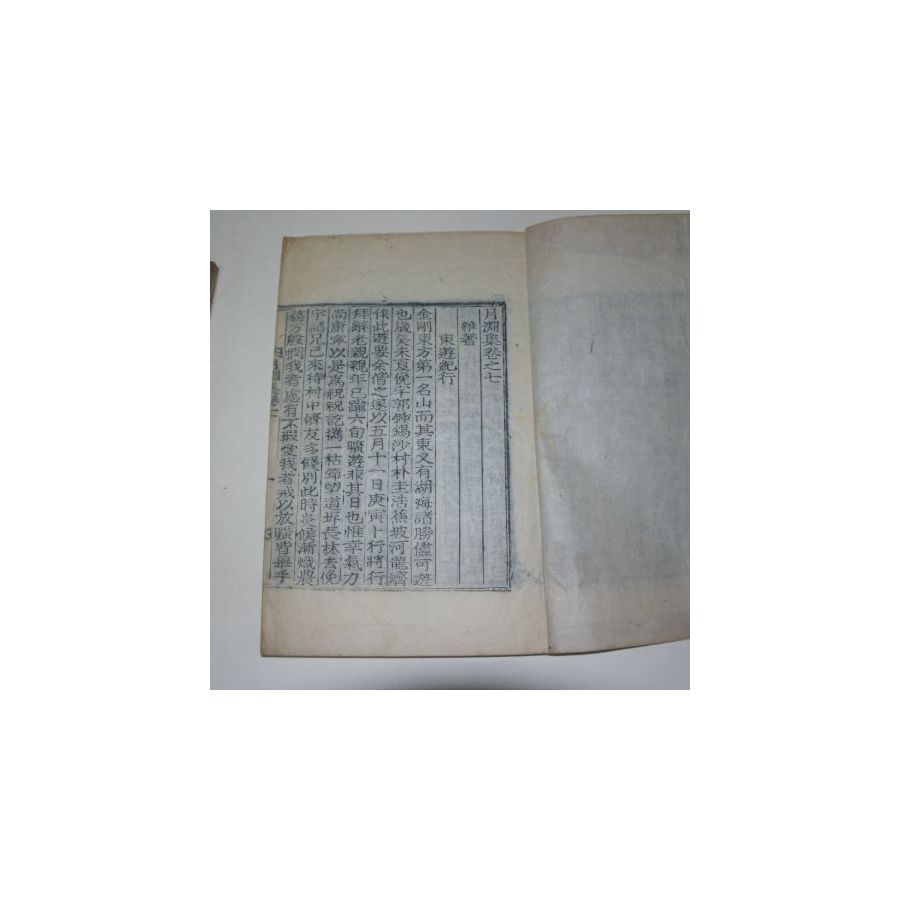 月淵集卷之七
雜著
東遊紀行
金剛東方第一名山而其東又有湖海諸勝儘可遊
也歲癸未夏俛宇郭鍾錫沙村朴圭浩蕉坡河龍濟
作此遊要余偕之遂以五月十一日庚寅卜行將行
拜辭老親親年已踰六旬曠遊非其日也惟幸氣力
尚康寧以是爲祝祝訖攜一枯笻望道坪長林去俛
宇諸兄已來待村中濟友多餞別此時炎候漸熾農
務方殷憫我者慮有不暇愛我者戒以放曠皆無乎